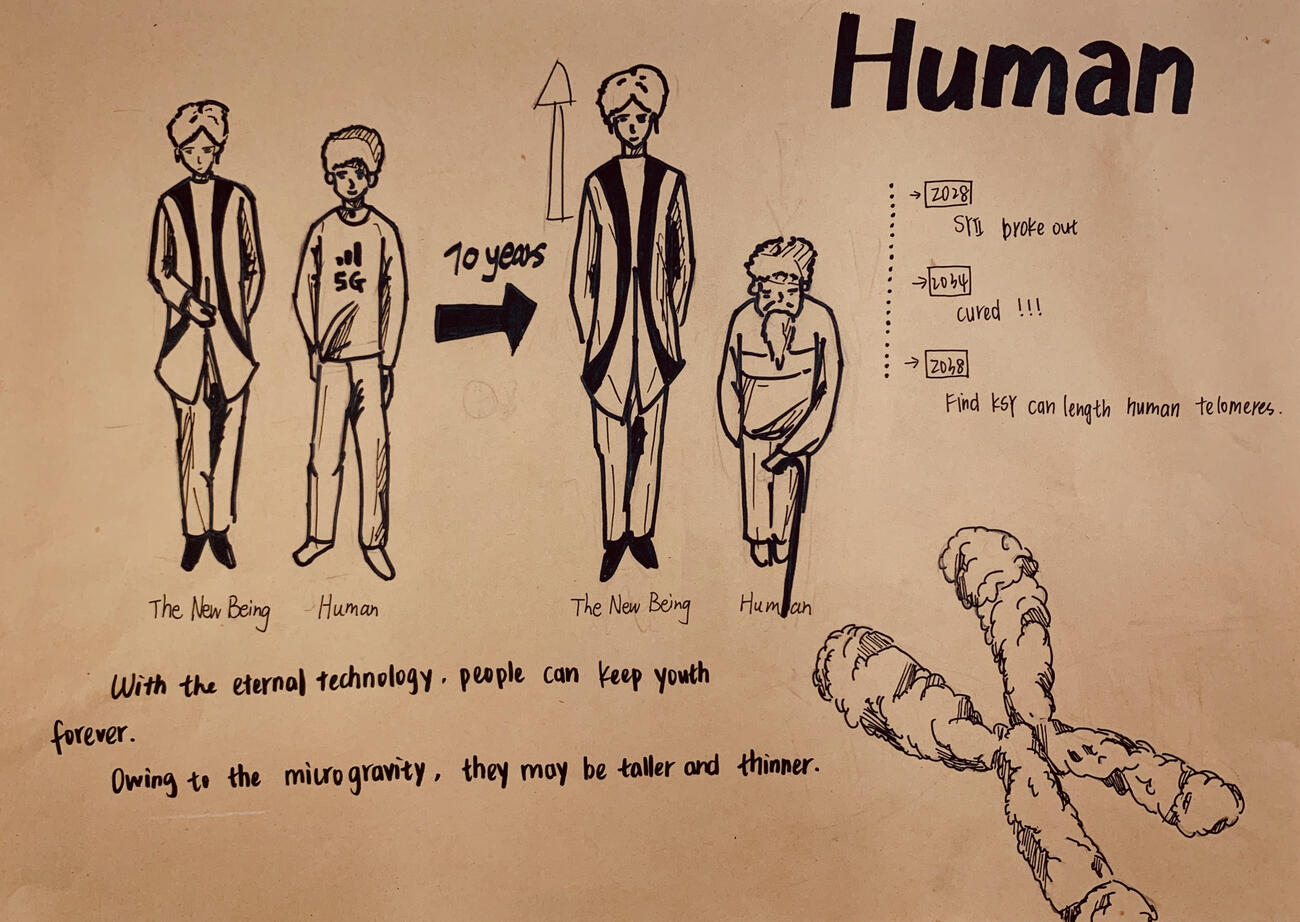 Human
70 years
5G
The New Being
Human
The New Being
Human
2028
broke out
2034
cured !!!
2038
Find KSY can length human telomeres.
With the eternal technology, people can keep youth
forever.
Owing to the microgravity, they may be taller and thinner.